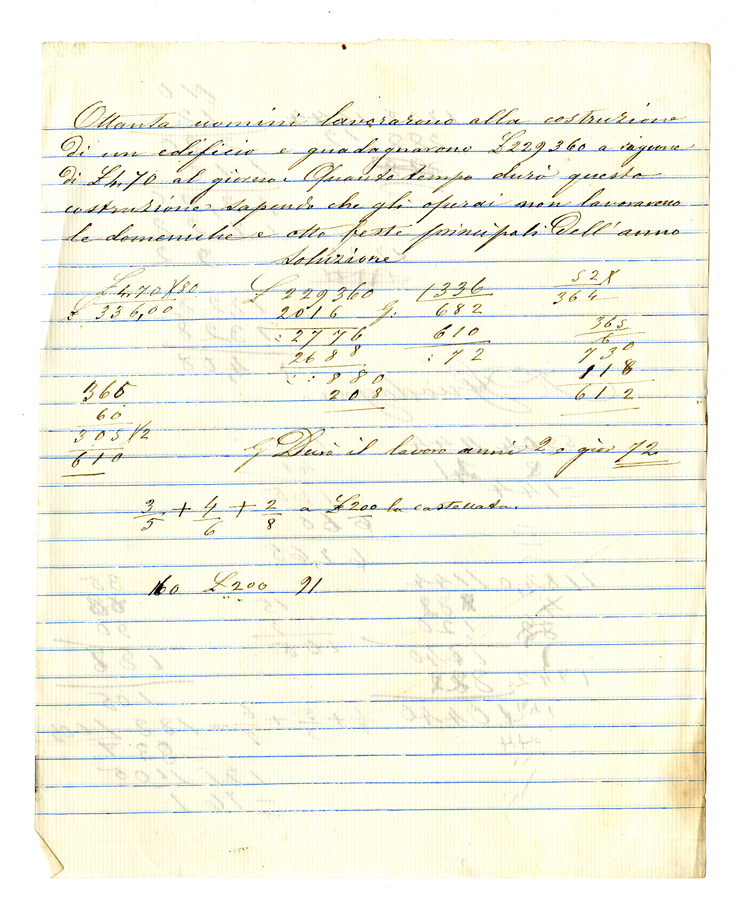 Ottanta uomini lavorarono alla costruzione
di un edificio e guadagnarono £229360 a ragione
di £4,70 al giorno. Quanto tempo durò questa
costruzione sapendo che gli operai non lavoravano
le domeniche e otto feste principali dell'anno
Soluzione
£4,70 X 80
£ 336,00
£ 229360
2016
: 2776
2688
: : 880
208
g. 1336
682
610
: 72
52 X
364
365
6
730
118
612
365
60
305 X 2
610
G Durò il lavoro anni 2 e gior 72
3/5 + 4/6 + 2/8 a £200 la castellata.
160 £200 91